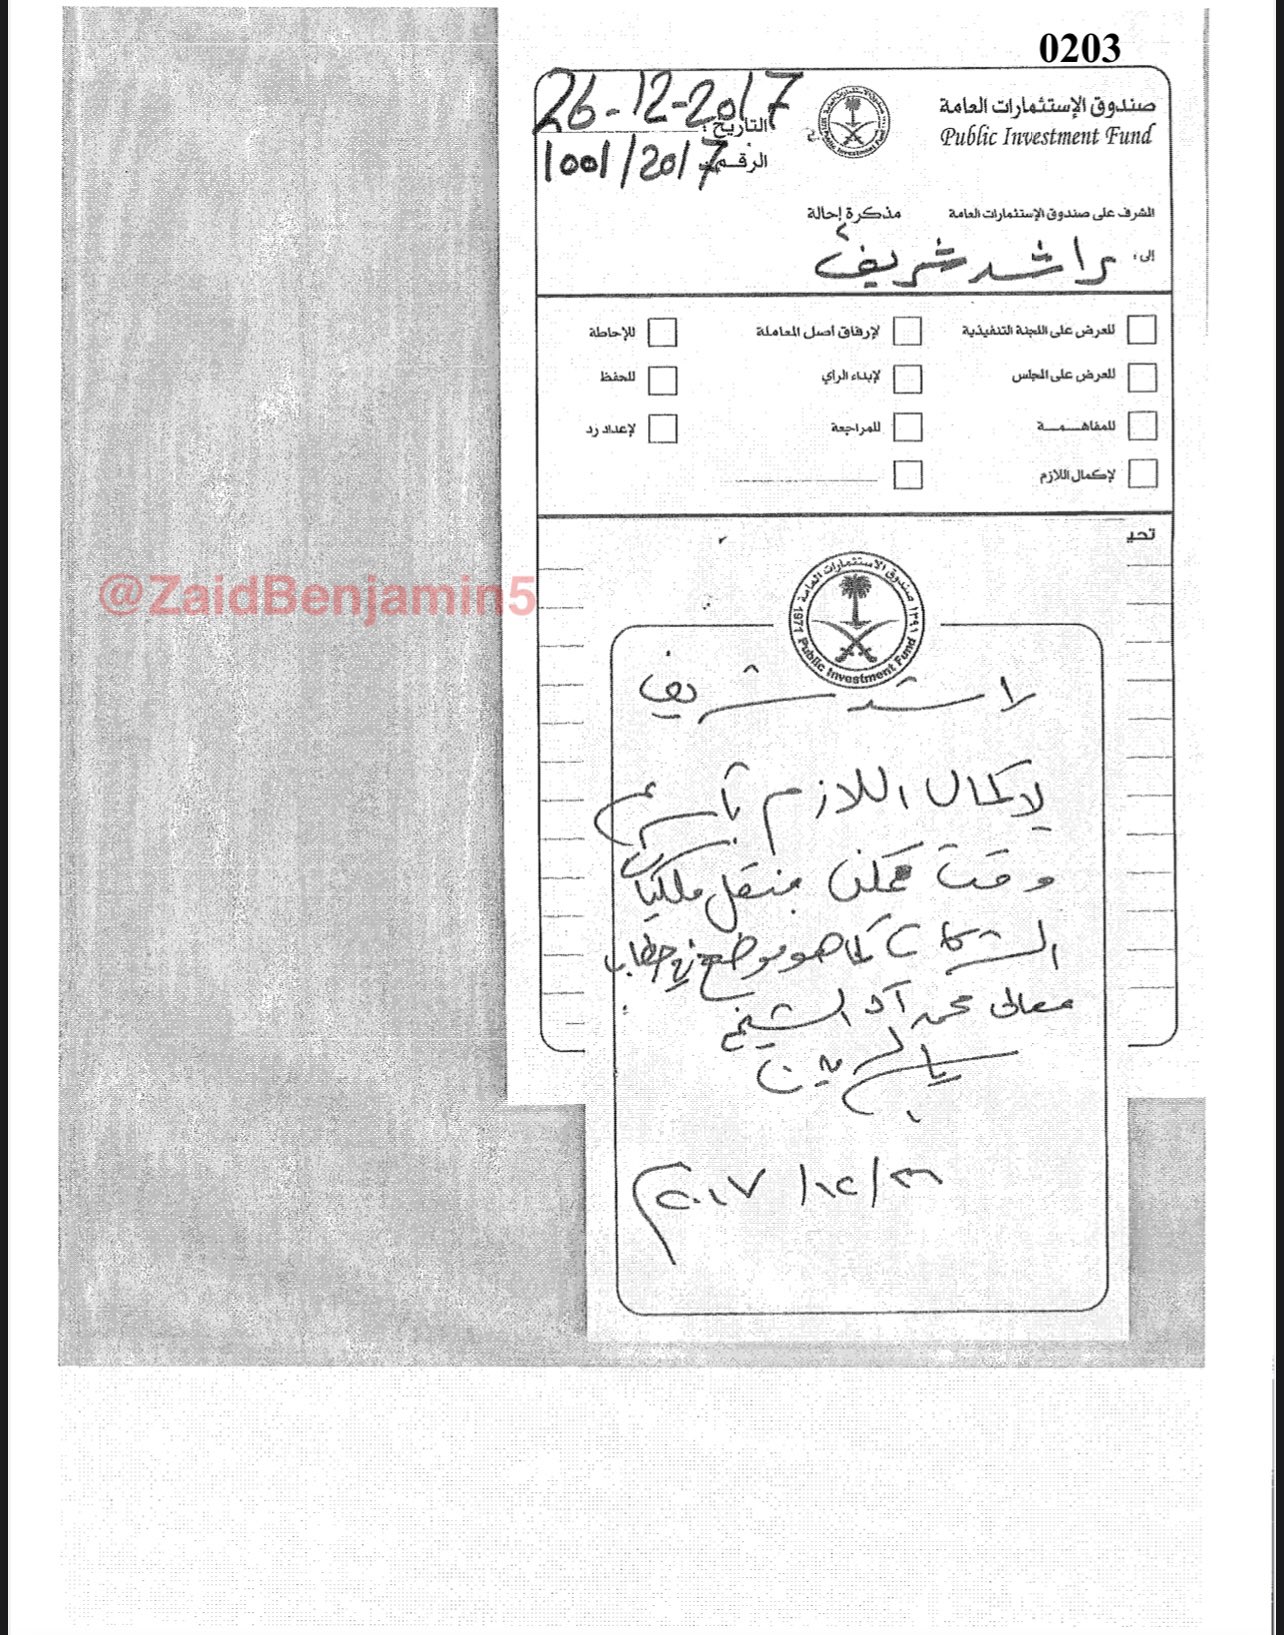 0203
صندوق الإستثمارات العامة
Public Investment Fund
26-12-2017
التاريخ :
1001/2017
الرقم
المشرف على صندوق الإستثمارات العامة
مذكرة إحالة
إلى :
راشد شريف
للعرض على اللجنة التنفيذية
لإرفاق أصل المعاملة
للإحاطة
للعرض على المجلس
لإبداء الرأي
للحفظ
للمفاهمة
للمراجعة
لإعداد رد
لإكمال اللازم
تحيـ
صندوق الاستثمارات العامة ١٣٩١
1971 Public Investment Fund
@ZaidBenjamin5
راشد شريف
لإكمال اللازم بأسرع
وقت ممكن بنقل ملكيات
الشركات كما هو موضح في خطاب
معالي محمد آل الشيخ
٢٠١٧/١٢/٢٦م